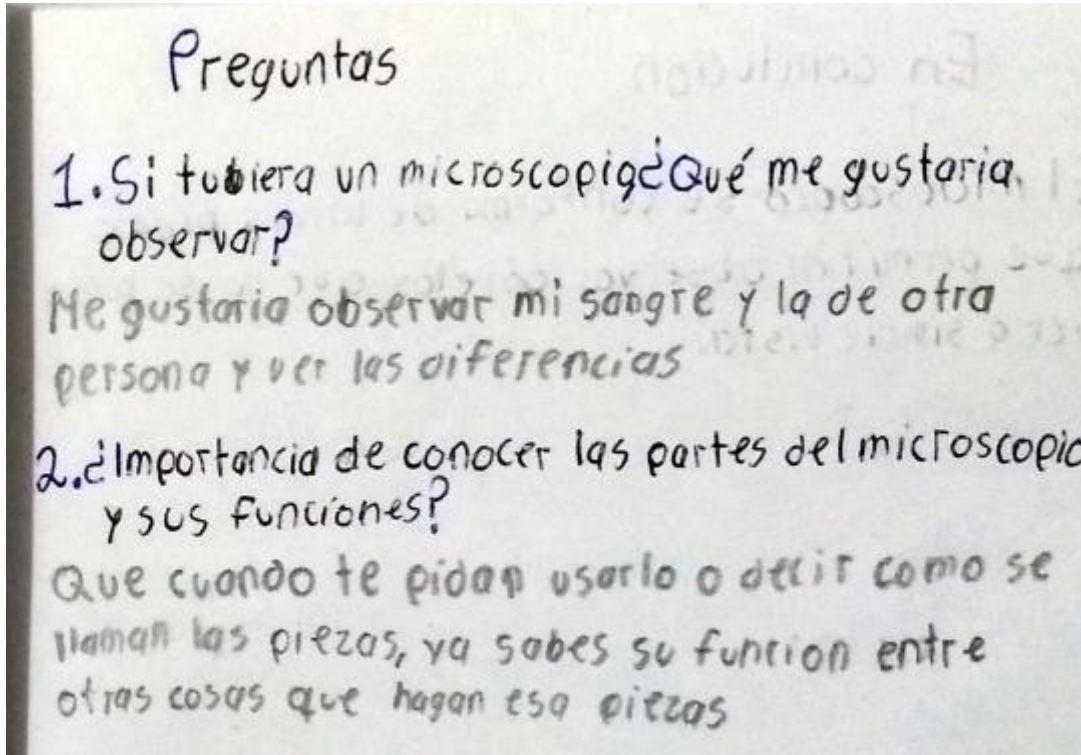 Preguntas
1. Si tubiera un microscopio ¿Qué me gustaria
observar?
Me gustaria observar mi sangre y la de otra
persona y ver las diferencias
2. ¿Importancia de conocer las partes del microscopio
y sus funciones?
Que cuando te pidan usarlo o decir como se
llaman las piezas, ya sabes su funcion entre
otras cosas que hagan esa piezas